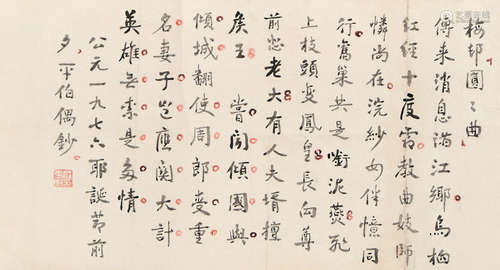 梅邨圓〻曲
傳来消息滿江鄉烏桕
紅經十度霜教曲妓師
憐尚在浣紗女伴憶同
行舊巢共是啣泥燕飛
上枝頭變鳳皇長向尊
前悲老大有人夫壻擅
侯王 嘗聞傾國與
傾城翻使周郎受重
名妻子豈應関大計
英雄無柰是多情
公元一九七六耶誕節前
夕平伯偶鈔